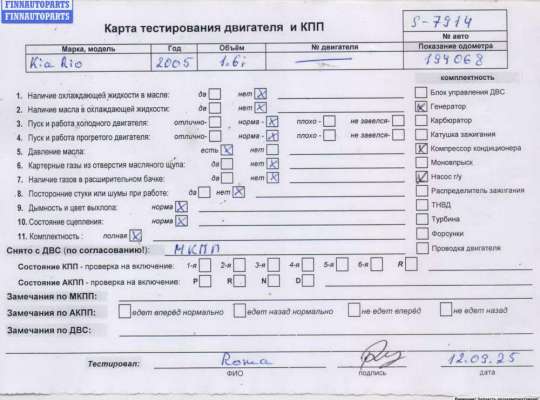 FINNAUTOPARTS
FINNAUTOPARTS
Карта тестирования двигателя и КПП
S-7914
№ авто
Марка, модель Год Объём № двигателя Показание одометра
Kia Rio 2005 1.6i 194068
комплектность
1. Наличие охлаждающей жидкости в масле: да нет X
2. Наличие масла в охлаждающей жидкости: да нет X
3. Пуск и работа холодного двигателя: отлично- норма - X плохо - не завелся-
4. Пуск и работа прогретого двигателя: отлично- норма - X плохо - не завелся-
5. Давление масла: есть X нет
6. Картерные газы из отверстия масляного щупа: да нет X
7. Наличие газов в расширительном бачке: да нет X
8. Посторонние стуки или шумы при работе: да нет X
9. Дымность и цвет выхлопа: норма X
10. Состояние сцепления: норма X
11. Комплектность : полная X
Блок управления ДВС
X Генератор
Карбюратор
Катушка зажигания
X Компрессор кондиционера
Моновпрыск
X Насос г/у
Распределитель зажигания
ТНВД
Турбина
Форсунки
Проводка двигателя
Снято с ДВС (по согласованию!): МКПП
Состояние КПП - проверка на включение: 1-я 2-я 3-я 4-я 5-я 6-я R
Состояние АКПП - проверка на включение: P R N D
Замечания по МКПП:
Замечания по АКПП: едет вперёд нормально едет назад нормально не едет вперёд не едет назад
Замечания по ДВС:
Тестировал: Roma 12.09.25
ФИО подпись дата